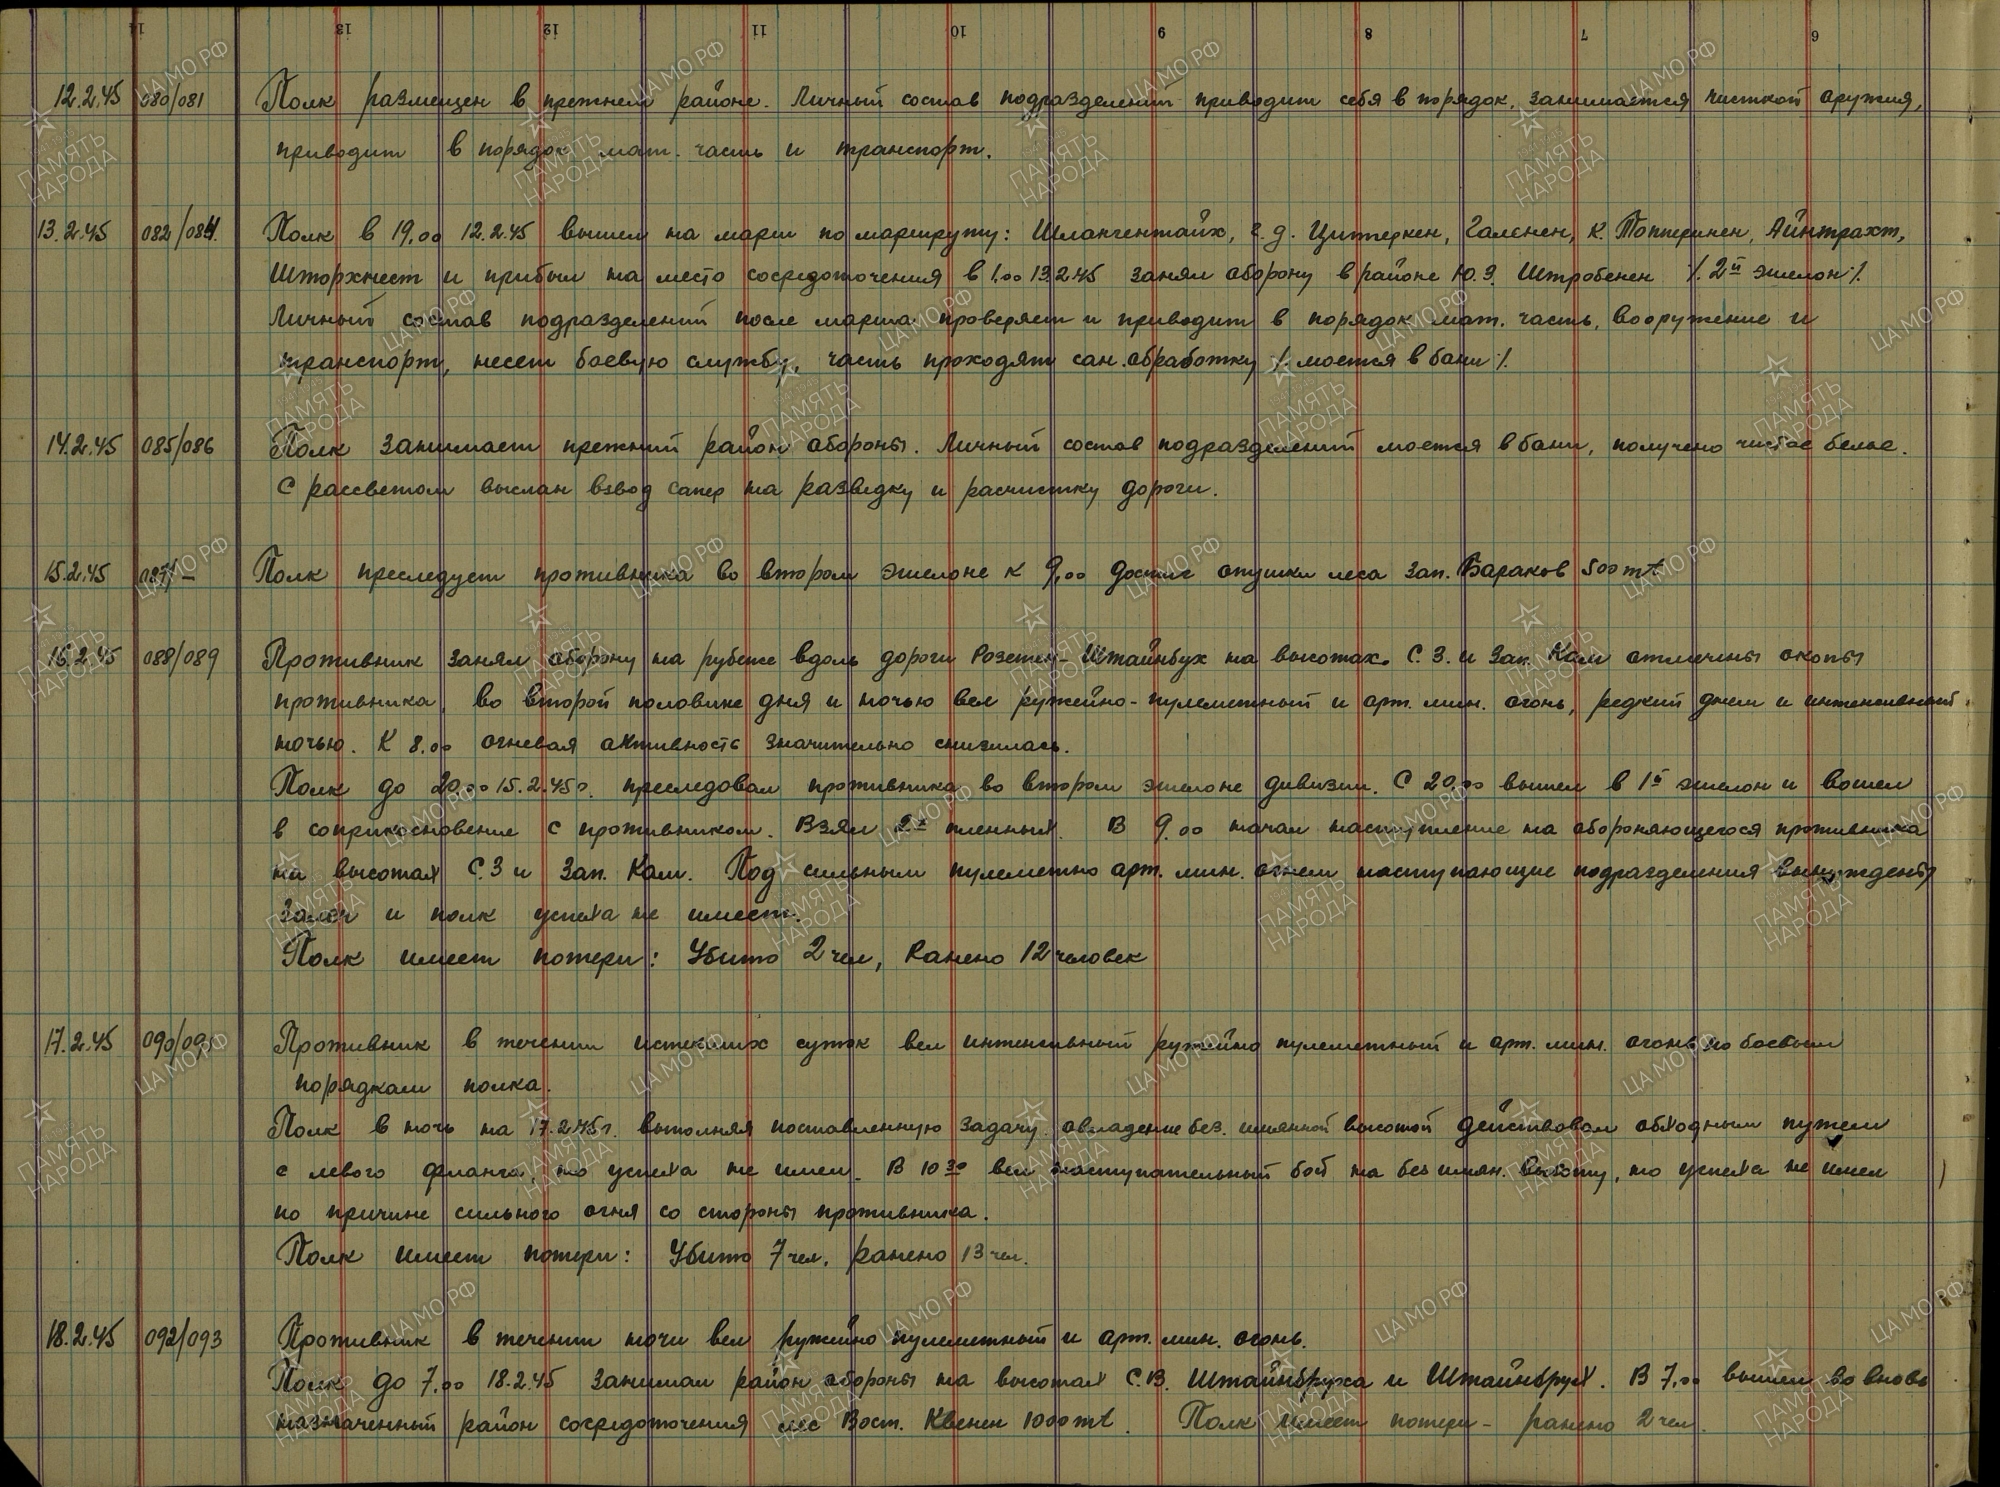 14 13 12 11 10 9 8 7 6
12.2.45 080/081 Полк размещен в прежнем районе. Личный состав подразделений приводит себя в порядок, занимается чисткой оружия,
приводит в порядок мат. часть и транспорт.
13.2.45 082/084. Полк в 19.00 12.2.45 вышел на марш по маршруту: Шлангентайх, г.д. Циттеркен, Галенен, К. Топпринен, Айнтрахт,
Шторхнест и прибыл на место сосредоточения в 1.00 13.2.45 занял оборону в районе Ю.З. Штробенен /. 2й эшелон ./.
Личный состав подразделений после марша проверяет и приводит в порядок мат. часть, вооружение и
транспорт, несет боевую службу, часть проходят сан.обработку /. моется в бани ./.
14.2.45 085/086 Полк занимает прежний район обороны. Личный состав подразделений моется в бани, получено чистое белье.
С рассветом выслан взвод сапер на разведку и расчистку дороги.
15.2.45 087/– Полк преследует противника во втором эшелоне к 9.00 достиг опушки леса зап. Бараков 500 mt
16.2.45 088/089 Противник занял оборону на рубеже вдоль дороги Розетен – Штайнбух на высотах. С.З. и Зап. Кам отмечены окопы
противника, во второй половине дня и ночью вел ружейно-пулеметный и арт. мин. огонь, редкий днем и интенсивный
ночью. К 8.00 огневая активность значительно снизилась.
Полк до 20.00 15.2.45г. преследовал противника во втором эшелоне дивизии. С 20.00 вышел в 1й эшелон и вошел
в соприкосновение с противником. Взял 2х пленных. В 9.00 начал наступление на обороняющегося противника
на высотах С.З и Зап. Кам. Под сильным пулеметно арт. мин. огнем наступающие подразделения вынуждены
залеч и полк успеха не имеет.
Полк имеет потери: Убито 2 чел, Ранено 12 человек
17.2.45 090/091 Противник в течении истекших суток вел интенсивный ружейно пулеметный и арт. мин. огонь по боевым
порядкам полка.
Полк в ночь на 17.2.45г. выполняя поставленную задачу овладение без. имянной высотой действовал обходным путем
с левого фланга, но успеха не имел. В 10 30 вел наступательный бой на безимян. высоту, но успеха не имел
по причине сильного огня со стороны противника.
Полк имеет потери: Убито 7 чел. ранено 13 чел.
18.2.45 092/093 Противник в течении ночи вел ружейно пулеметный и арт. мин. огонь.
Полк до 7.00 18.2.45 занимал район обороны на высотах С.В. Штайнбруха и Штайнбрух. В 7.00 вышел во вновь
назначенный район сосредоточения лес Вост. Квенен 1000 mt. Полк имеет потери – ранено 2 чел.